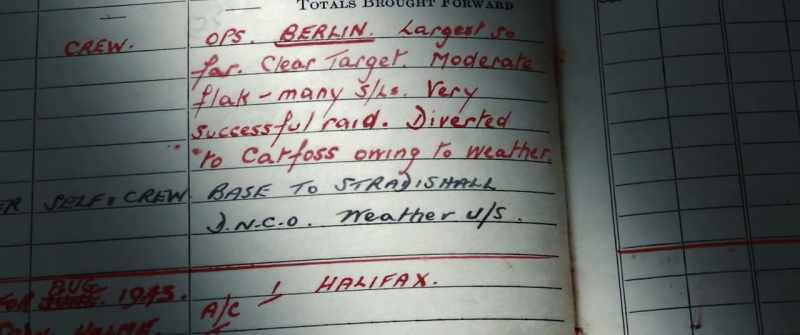 TOTALS BROUGHT FORWARD
CREW. OPS. BERLIN. Largest so
far. Clear Target. Moderate
flak - many S/Ls. Very
successful raid. Diverted
to Catfoss owing to weather.
SELF & CREW. BASE TO STRADISHALL
D.N.C.O. Weather U/S.
AUG
1943.
A/C 1 HALIFAX.